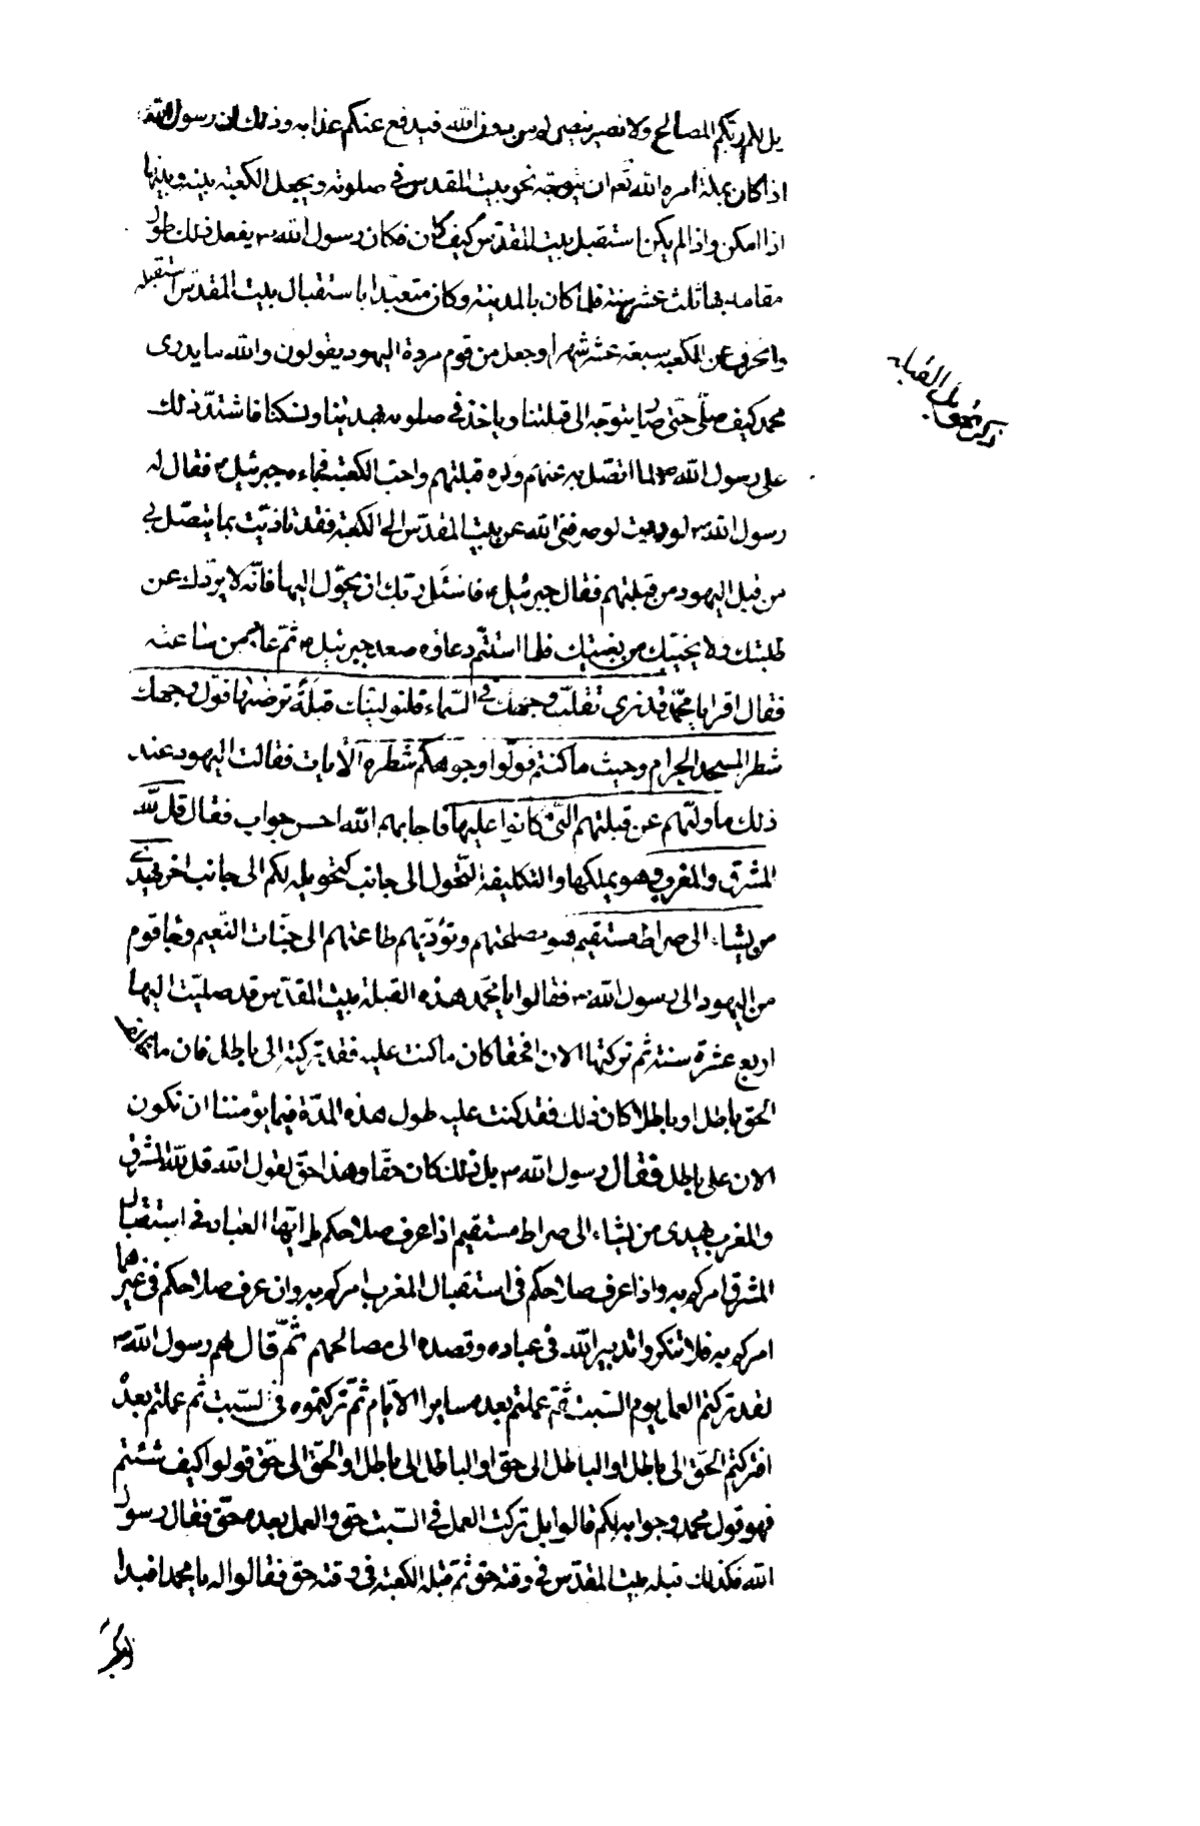 يل لكم ربكم المصالح ولا نصير ينصركم من دون الله فيدفع عنكم عذابه وذلك ان رسول الله
اذا كان بمكة امره الله تعم ان يتوجه نحو بيت المقدس فى صلوته ويجعل الكعبة بينه بينها
اذا امكن واذا لم يكن استقبل بيت المقدس كيف كان فكان رسول الله ص يفعل ذلك طول
مقامه بها ثلث عشر سنة فلما كان بالمدينة وكان متعبدا باستقبال بيت المقدس استقبله
وانحرف عن الكعبة سبعة عشر شهرا وجعل من قوم مردة اليهود يقولون والله ما يدرى
محمد كيف صلى حتى صار يتوجه الى قبلتنا وياخذ فى صلوته بهدينا ونسكنا فاشتد ذلك
على رسول الله ص لما اتصل به عنهم وكره قبلتهم واحب الكعبة فجاءه جبرئيل ع فقال له
رسول الله ص لوددت لو صرفنى الله عن بيت المقدس الى الكعبة فقد تاذيت بما يتصل بى
من قبل اليهود من قبلتهم فقال جبرئيل ع فاسئل ربك ان يحولك اليها فانه لا يردك عن
طلبتك ولا يخيبك من بغيتك فلما استتم دعاؤه صعد جبرئيل ع ثم عاد من ساعته
فقال اقرا يا محمد قد نرى تقلب وجهك فى السماء فلنولينك قبلة ترضيها فول وجهك
شطر المسجد الحرام وحيث ما كنتم فولوا وجوهكم شطره الآيات فقالت اليهود عند
ذلك ما وليهم عن قبلتهم التى كانوا عليها فاجابهم الله احسن جواب فقال قل لله
المشرق والمغرب وهو يملكها والتكليفه التحول الى جانب كتحويله لكم الى جانب اخر يهدى
من يشاء الى صراط مستقيم هو مصلحتهم وتؤديهم طاعتهم الى جنات النعيم وجا قوم
من اليهود الى رسول الله ص فقالوا يا محمد هذه القبلة بيت المقدس قد صليت اليها
اربع عشرة سنة ثم تركتها الان افحقا كان ما كنت عليه فقد تركته الى باطل فان ما
الحق باطل او باطلا كان ذلك فقد كنت عليه طول هذه المدة فيما يؤمننا ان تكون
الان على باطل فقال رسول الله ص بل ذلك كان حقا وهذا حق يقول الله قل لله المشرق
والمغرب يهدى من يشاء الى صراط مستقيم اذا عرف صلاحكم يا ايها العباد فى استقبال
المشرق امركم به واذا عرف صلاحكم فى استقبال المغرب امركم به وان عرف صلاحكم فى غيرهما
امركم به فلا تنكروا تدبير الله فى عباده وقصده الى مصالحهم ثم قال لهم رسول الله ص
لقد تركتم العمل يوم السبت ثم عملتم بعده ساير الايام ثم تركتموه فى السبت ثم عملتم بعده
افتركتم الحق الى باطل او الباطل الى حق او الباطل الى باطل او الحق الى حق قولوا كيف شئتم
فهو قول محمد وجوابه لكم قالوا بل ترك العمل فى السبت حق والعمل بعده حق فقال رسول
الله فكذلك قبلة بيت المقدس فى وقته حق ثم قبلة الكعبة فى وقته حق فقالوا له يا محمد افبدا
ذكر تحويل القبلة